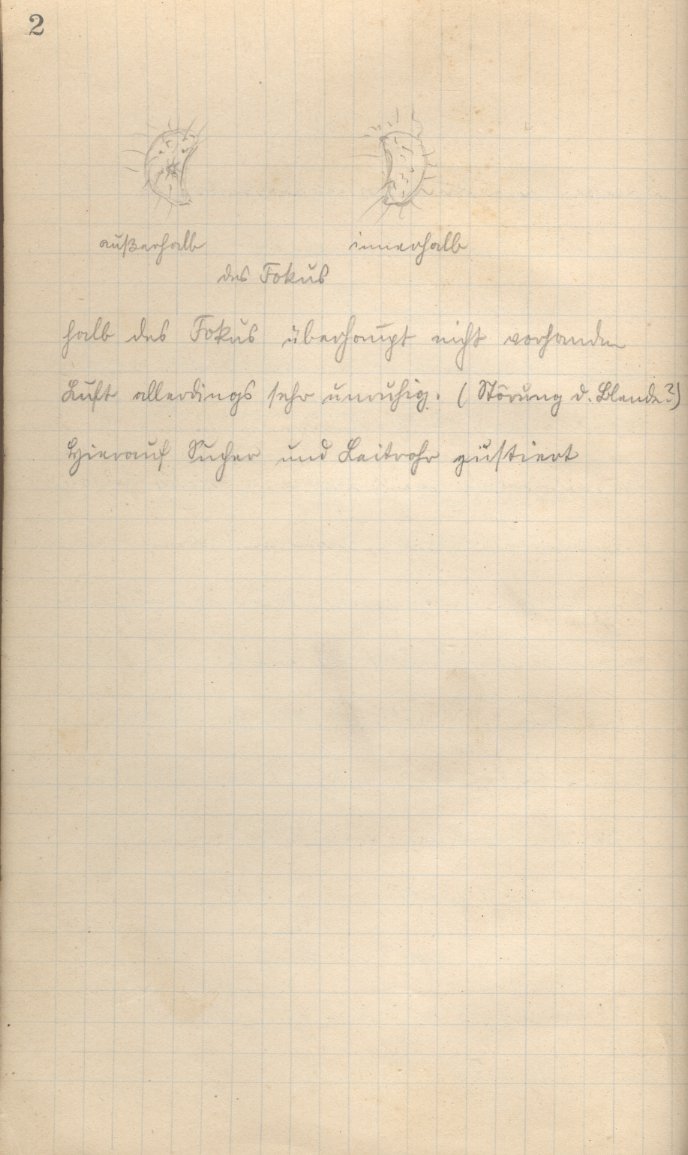 2
außerhalb innerhalb
des Fokus
halb des Fokus überhaupt nicht vorhanden
Luft allerdings sehr unruhig. (Störung d. Blende?)
Hierauf Sucher und Leitrohr justiert